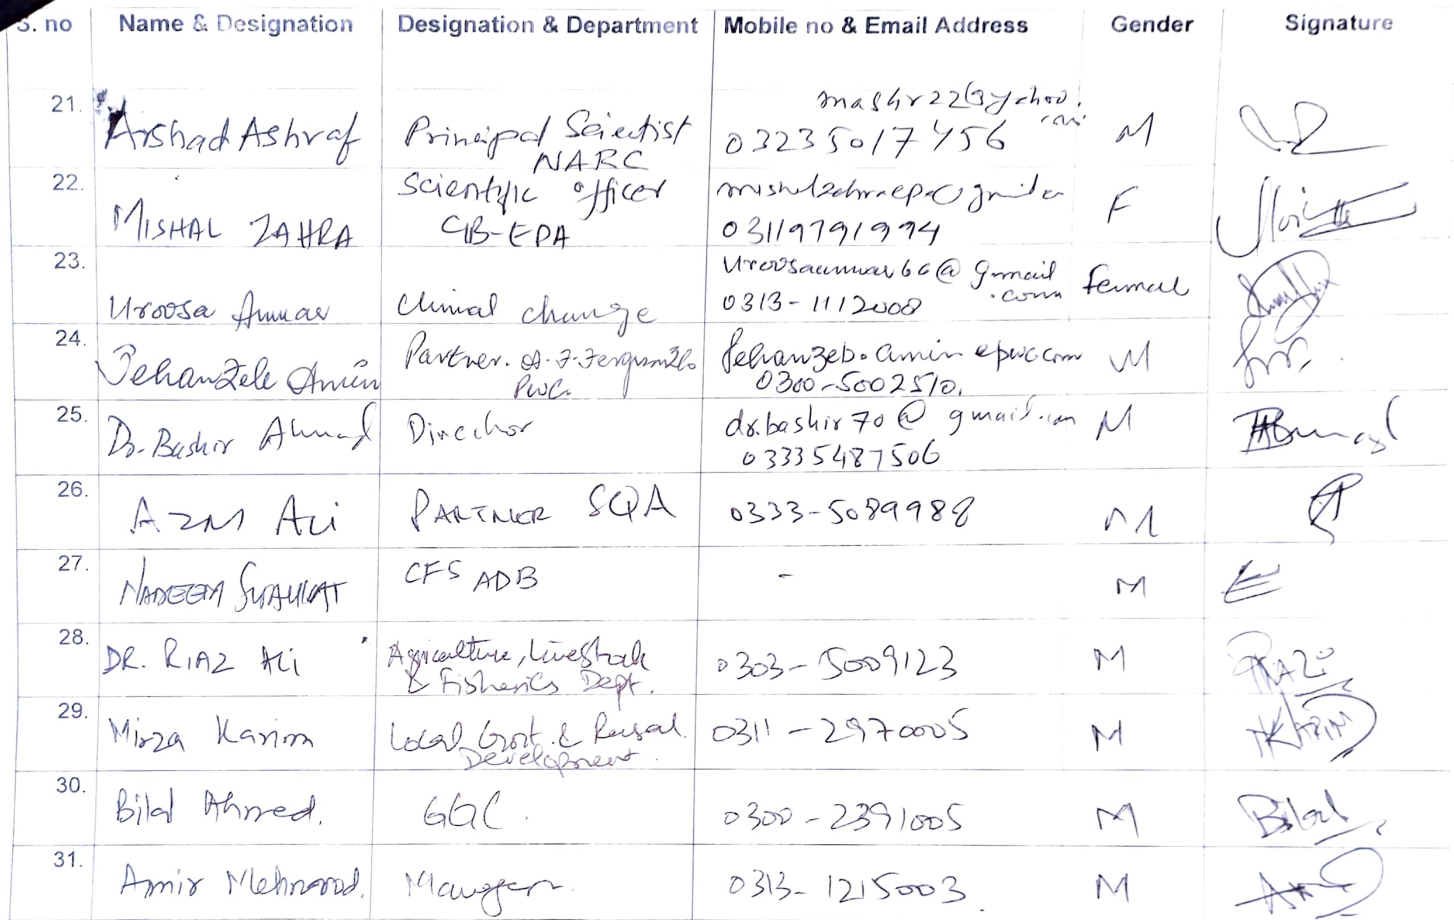 S. no Name & Designation Designation & Department Mobile no & Email Address Gender Signature
21. Arshad Ashraf Principal Scientist NARC mashr22@yahoo.com 03235017456 M
22. MISHAL ZAHRA Scientific officer GB-EPA 03119791994 F
23. Uroosa Ammar Climal change uroosaammar66@gmail.com 0313-1112008 female
24. Jehanzeb Amin Partner. A.F.Ferguson & Co PWC. Jehanzeb.amin@pwc.com 0300-5002510. M
25. Dr. Bashir Ahmad Director dr.bashir70@gmail.com 03335487506 M
26. AZM ALI PARTNER SQA 0333-5089988 M
27. NADEEM SHAUKAT CFS ADB - M
28. DR. RIAZ Ali Agriculture, Livestock & Fisheries Dept. 0303-5009123 M
29. Mirza Karim Local Govt & Rural Development. 0311-2970005 M
30. Bilal Ahmed. GGC. 0300-2391005 M Bilal
31. Amir Mehmood. Manager 0313-1215003 M